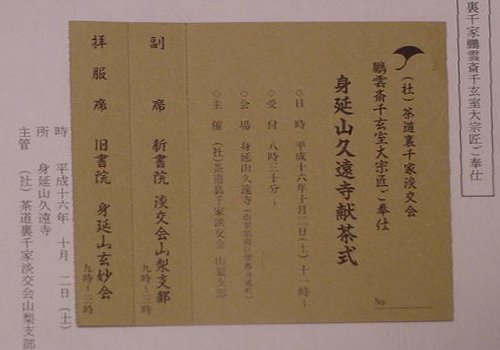 裏千家鵬雲斎千玄室大宗匠ご奉仕
(社)茶道裏千家淡交会
鵬雲斎千玄室大宗匠ご奉仕
身延山久遠寺献茶式
○日 時 平成十六年十月二日(土)十一時〜
○受 付 八時三十分〜
○会 場 身延山久遠寺
○主 催 (社)茶道裏千家淡交会 山梨支部
No
副 席 新書院 淡交会山梨支部
九時〜三時
拝 服 席 旧書院 身延山玄妙会
九時〜三時
時 平成十六年 十月 二日(土)
所 身延山久遠寺
主管 (社)茶道裏千家淡交会山梨支部